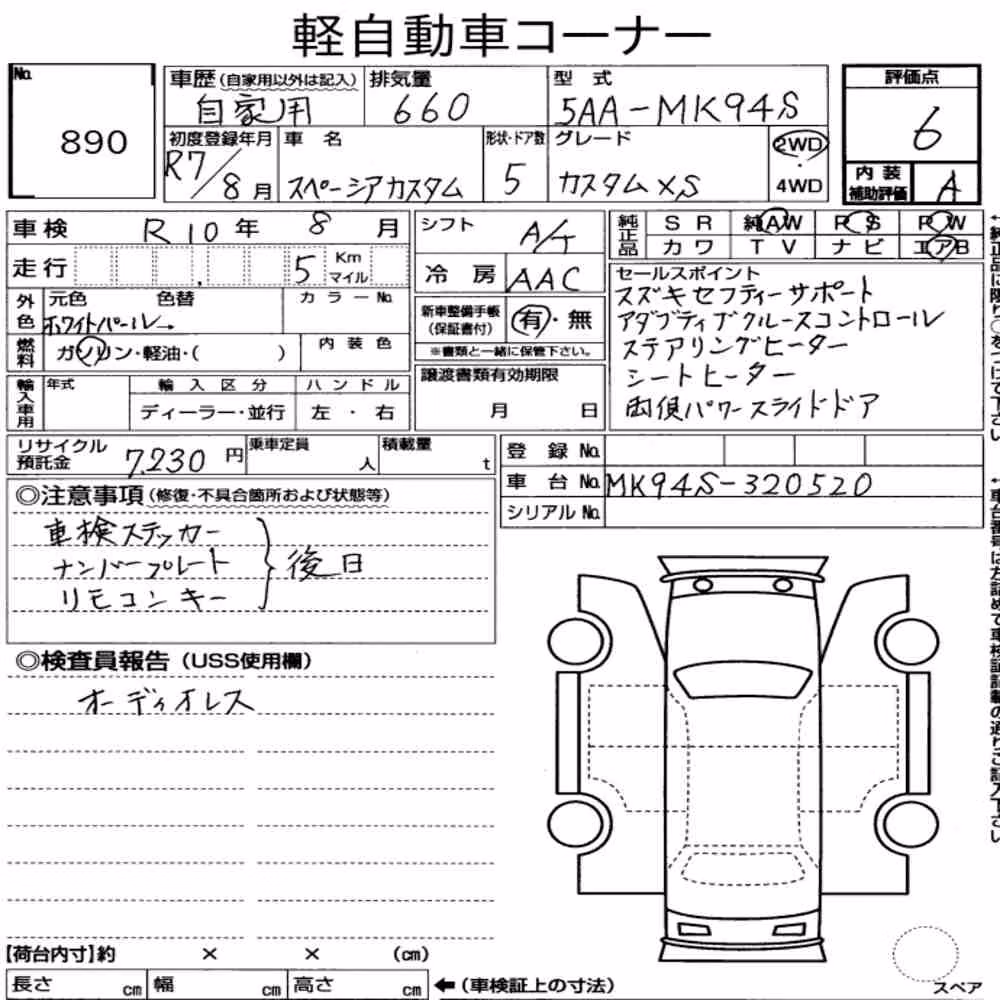 軽自動車コーナー
No. 890
車歴 (自家用以外は記入) 自家用
排気量 660
型式 5AA-MK94S
評価点 6
初度登録年月 R7/8月
車名 スペーシアカスタム
形状・ドア数 5
グレード カスタムXS
2WD・4WD
内装補助評価 A
車検 R10年 8月
シフト A/T
純正品 SR 純AW PS PW
カワ TV ナビ エアB
走行 5 Km マイル
冷房 AAC
セールスポイント
スズキセフティーサポート
アダプティブクルーズコントロール
ステアリングヒーター
シートヒーター
両側パワースライドドア
外色 元色 色替 カラーNo.
ホワイトパール
新車整備手帳 (保証書付) 有・無
※書類と一緒に保管下さい。
燃料 ガソリン・軽油・( )
内装色
譲渡書類有効期限
月 日
輸入車用 年式 輸入区分 ハンドル
ディーラー・並行 左・右
リサイクル預託金 7,230円
乗車定員 人
積載量 t
登録No.
車台No. MK94S-320520
シリアルNo.
◎注意事項 (修復・不具合箇所および状態等)
車検ステッカー
ナンバープレート
リモコンキー
後日
◎検査員報告 (USS使用欄)
オーディオレス
【荷台内寸】約 × × (cm)
長さ cm 幅 cm 高さ cm
←(車検証上の寸法)
スペア